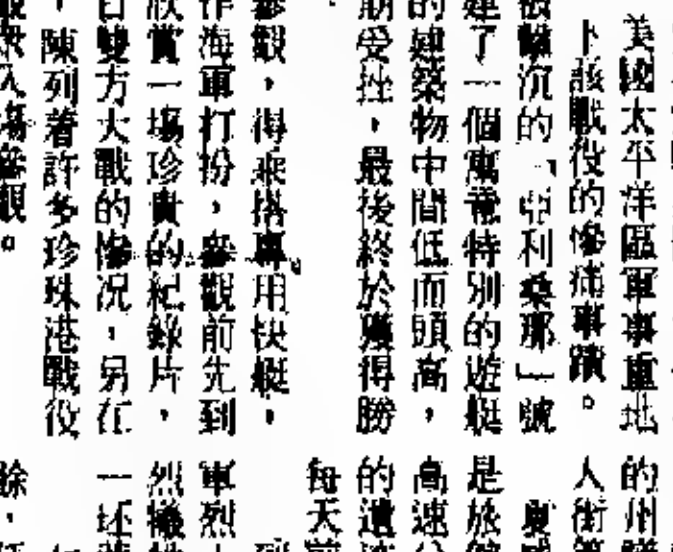 美國太平洋區軍事重地
卜該戰役的慘痛事蹟。
沉的「亞利桑那」號
建了一個寓意特別的遊艇
的建築物中間低而頭高，
期受挫，最後終於獲得勝
參觀，得乘搭專用快艇，
作海軍打扮，參觀前先到
欣賞一場珍貴的紀錄片，
日雙方大戰的慘況，另在
，陳列着許多珍珠港戰役
眾入場參觀。
的州
人街
是旅
高速
的遺
每天
軍烈
烈犧
一环
餘，